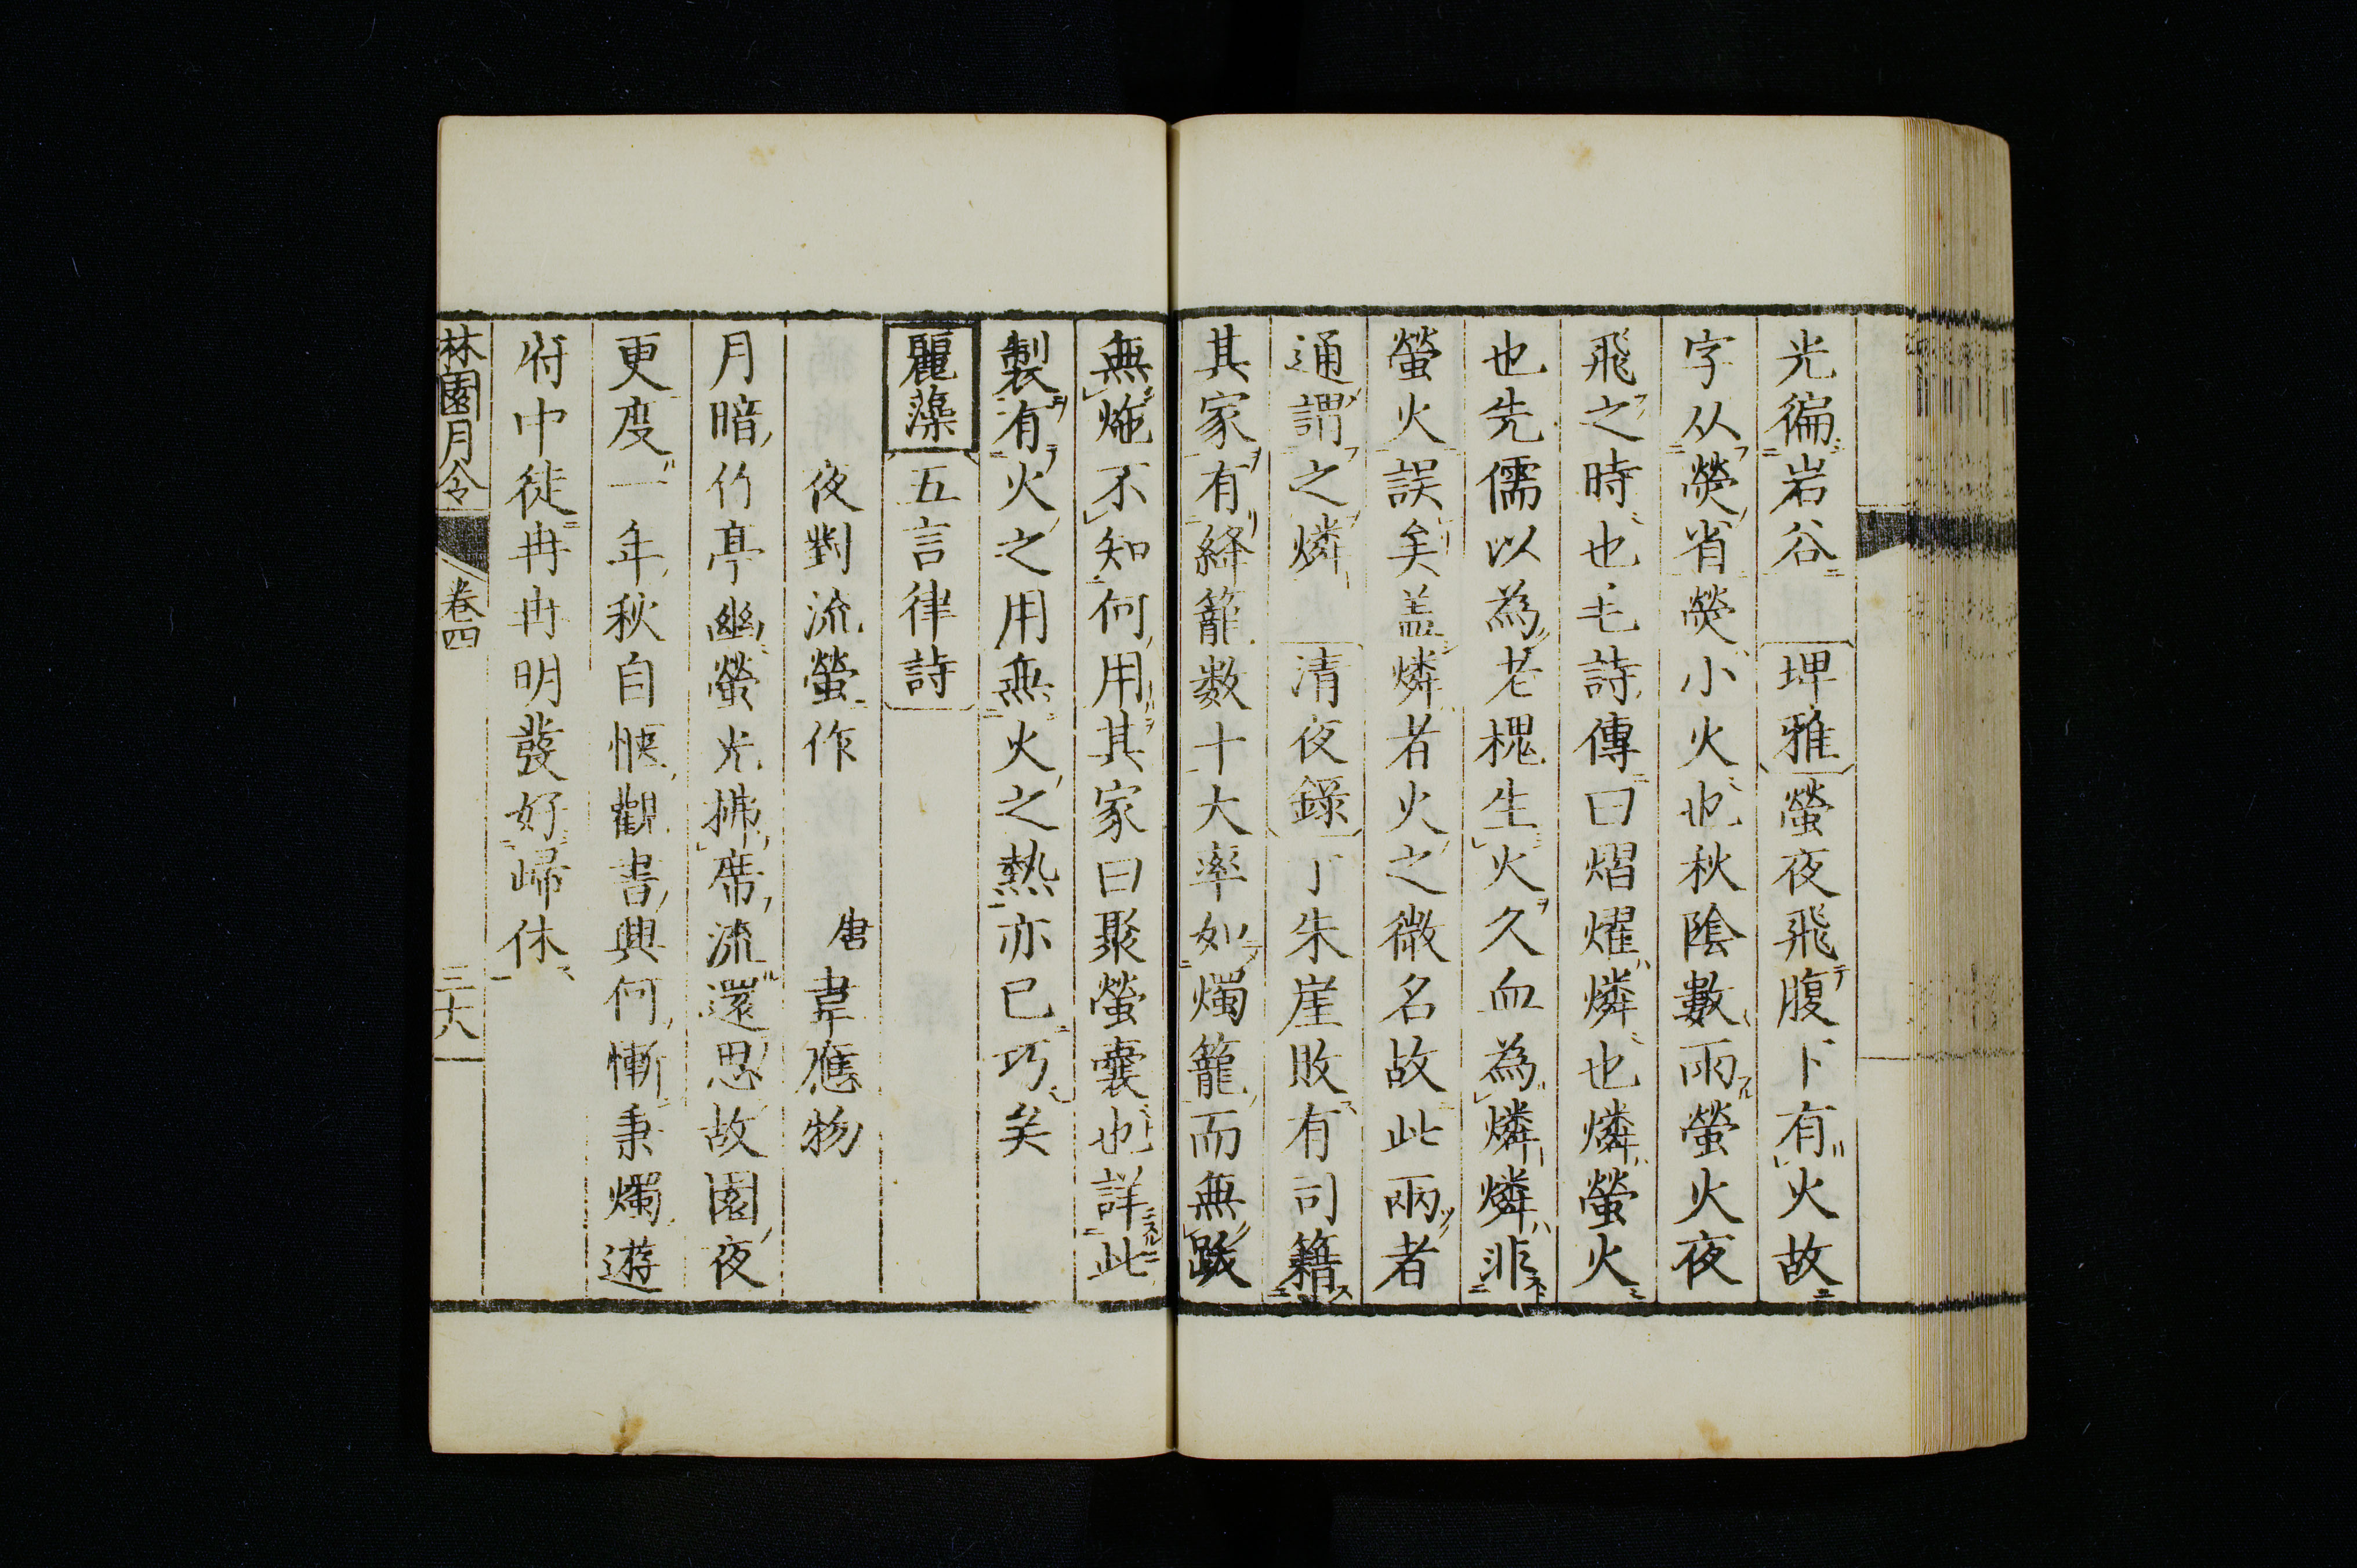 光徧岩谷 埤雅 螢夜飛腹下有火故
字从熒省熒小火也秋陰數雨螢火夜
飛之時也毛詩傳曰熠燿燐也燐螢火
也先儒以為老槐生火久血為燐燐非
螢火誤矣盖燐者火之微名故此兩者
通謂之燐 清夜錄 丁朱崖敗有司籍
其家有絳籠数十大率如燭籠而無跋
無炧不知何用其家曰聚螢囊也詳此
製有火之用無火之熱亦已巧矣
麗藻 五言律詩
夜對流螢作 唐 韋應物
月暗竹亭幽螢光拂席流還思故園夜
更度一年秋自愜觀書興何慚秉燭遊
府中徒冉冉明發好歸休
林園月令 卷四 三十八